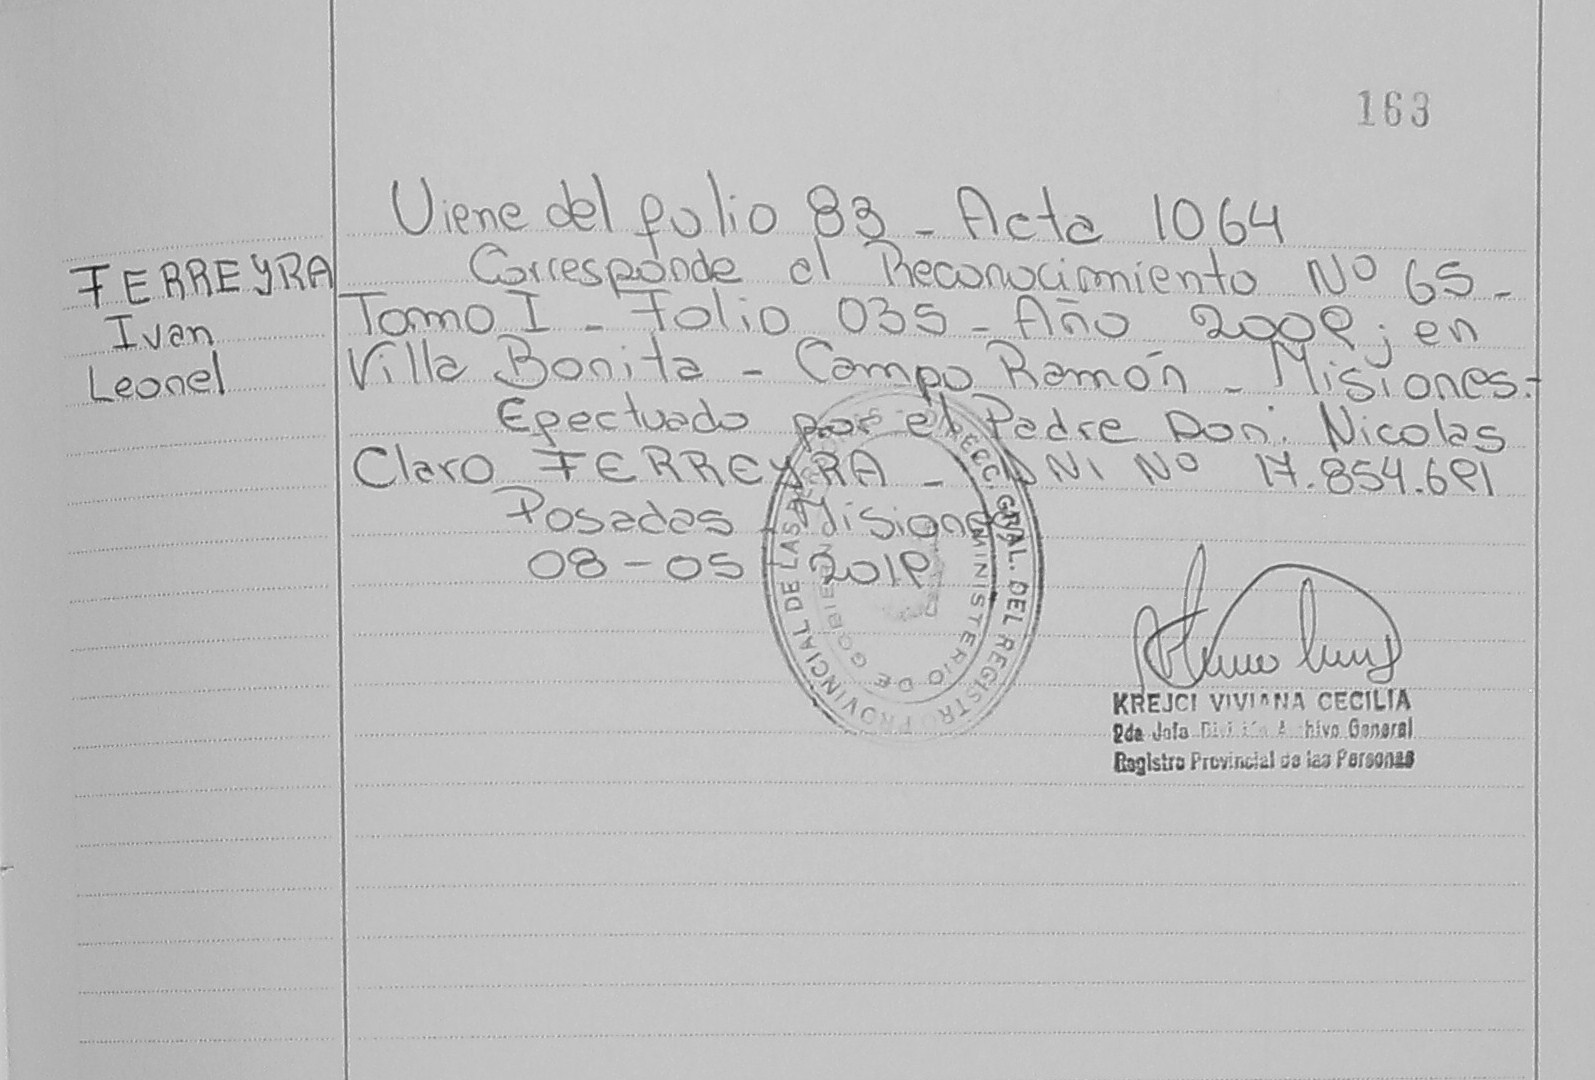 163
Viene del folio 83 - Acta 1064
FERREYRA
Ivan
Leonel
Corresponde al Reconocimiento Nº 65 -
Tomo I - Folio 035 - Año 2009; en
Villa Bonita - Campo Ramón - Misiones.-
Efectuado por el Padre Don: Nicolas
Claro FERREYRA - DNI Nº 17.854.691
Posadas - Misiones
08 - 05 - 2019
DIRECC. GRAL. DEL REGISTRO PROVINCIAL DE LAS
MINISTERIO DE GOBIERNO
KREJCI VIVIANA CECILIA
2da Jefa División Archivo General
Registro Provincial de las Personas